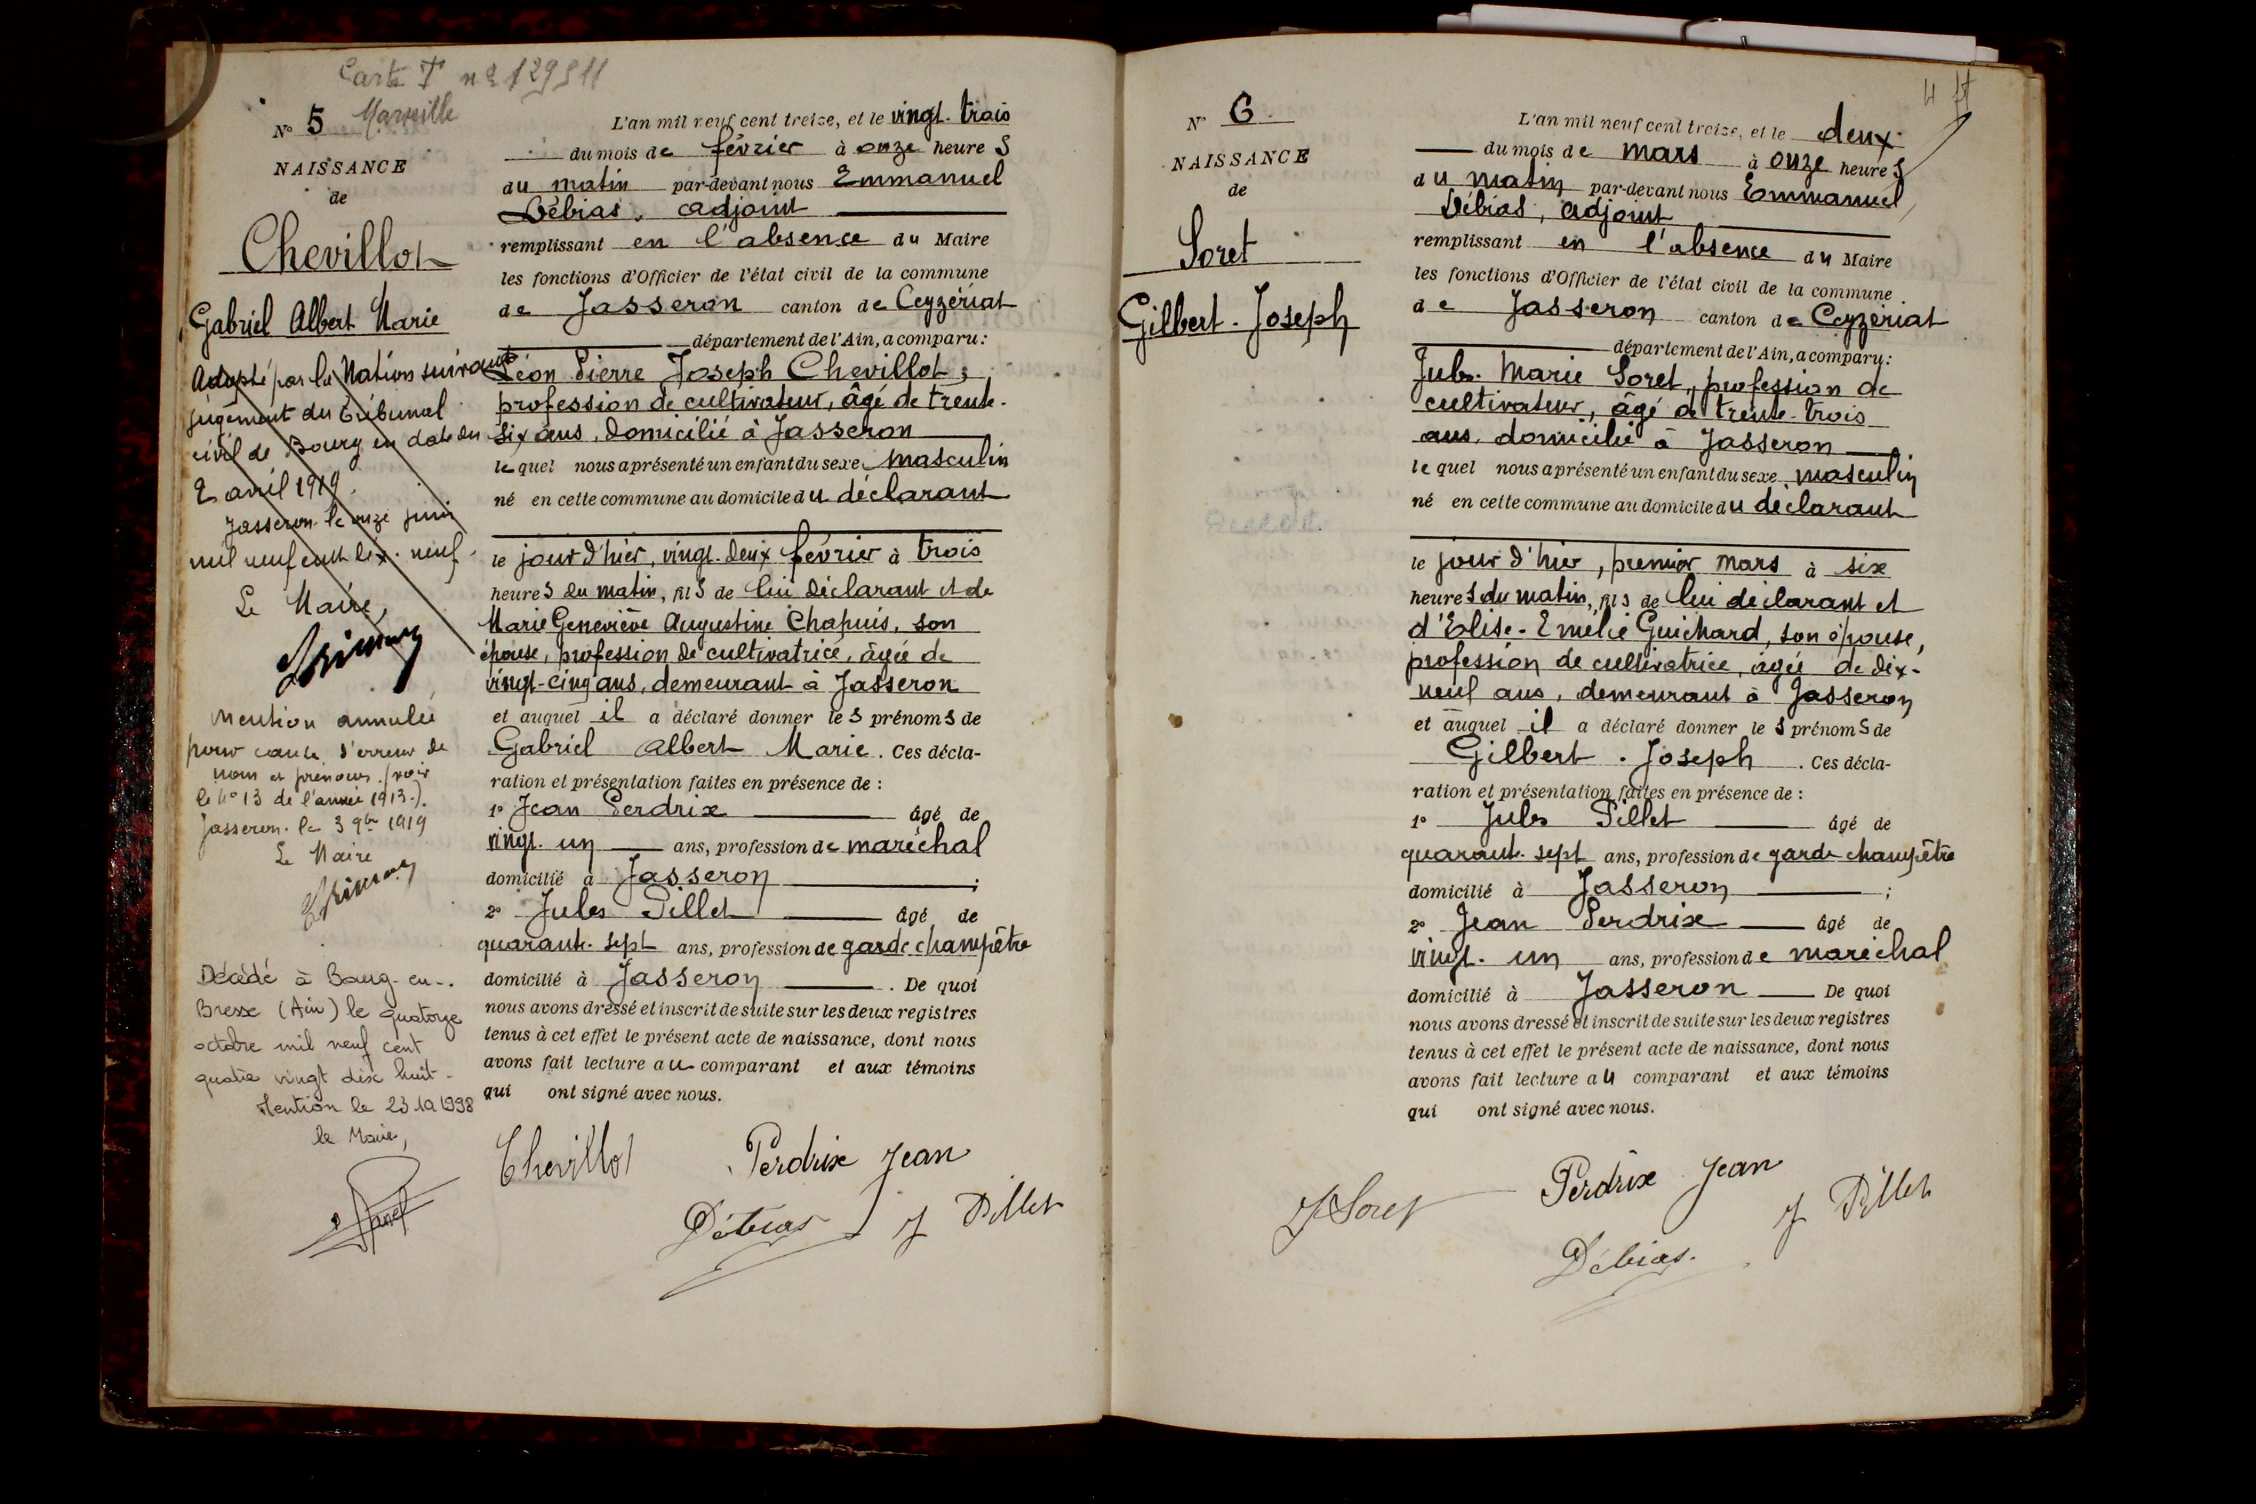 Carte T n° 129511
Marseille
N° 5
NAISSANCE
de
Chevillot
Gabriel Albert Marie
Adopté par la Nation suivant
jugement du tribunal
civil de Bourg en date du
2 avril 1919.
Jasseron le onze juin
mil neuf cent dix-neuf.
Le Maire,
Mention annulée
pour cause d'erreur de
nom et prénoms (voir
le n° 13 de l'année 1913.).
Jasseron. le 3 9bre 1919
Le Maire
Décédé à Bourg-en-
Bresse (Ain) le quatorze
octobre mil neuf cent
quatre vingt dix huit-
Mention le 23.10.1998
le Maire,
L'an mil neuf cent treize, et le vingt-trois
du mois de février à onze heures
du matin par-devant nous Emmanuel
Débias, adjoint
remplissant en l'absence du Maire
les fonctions d'Officier de l'état civil de la commune
de Jasseron canton de Ceyzériat
département de l'Ain, a comparu:
Léon Pierre Joseph Chevillot,
profession de cultivateur, âgé de trente-
six ans, domicilié à Jasseron
lequel nous a présenté un enfant du sexe masculin
né en cette commune au domicile du déclarant
le jour d'hier, vingt-deux février à trois
heures du matin, fils de lui déclarant et de
Marie Geneviève Augustine Chapuis, son
épouse, profession de cultivatrice, âgée de
vingt-cinq ans, demeurant à Jasseron
et auquel il a déclaré donner les prénoms de
Gabriel Albert Marie. Ces décla-
ration et présentation faites en présence de :
1° Jean Perdrix âgé de
vingt-un ans, profession de maréchal
domicilié à Jasseron ;
2° Jules Pillet âgé de
quarante-sept ans, profession de garde champêtre
domicilié à Jasseron. De quoi
nous avons dressé et inscrit de suite sur les deux registres
tenus à cet effet le présent acte de naissance, dont nous
avons fait lecture au comparant et aux témoins
qui ont signé avec nous.
Chevillot Perdrix Jean
Débias J Pillet
N° 6
NAISSANCE
de
Soret
Gilbert-Joseph
4
L'an mil neuf cent treize, et le deux
du mois de mars à onze heures
du matin par-devant nous Emmanuel
Débias, adjoint
remplissant en l'absence du Maire
les fonctions d'Officier de l'état civil de la commune
de Jasseron canton de Ceyzériat
département de l'Ain, a comparu:
Jules Marie Soret, profession de
cultivateur, âgé de trente-trois
ans, domicilié à Jasseron
lequel nous a présenté un enfant du sexe masculin
né en cette commune au domicile du déclarant
le jour d'hier, premier mars à six
heures du matin, fils de lui déclarant et
d'Elise-Emélie Guichard, son épouse,
profession de cultivatrice, âgée de dix-
neuf ans, demeurant à Jasseron
et auquel il a déclaré donner les prénoms de
Gilbert-Joseph. Ces décla-
ration et présentation faites en présence de :
1° Jules Pillet âgé de
quarante-sept ans, profession de garde-champêtre
domicilié à Jasseron ;
2° Jean Perdrix âgé de
vingt-un ans, profession de maréchal
domicilié à Jasseron De quoi
nous avons dressé et inscrit de suite sur les deux registres
tenus à cet effet le présent acte de naissance, dont nous
avons fait lecture au comparant et aux témoins
qui ont signé avec nous.
Soret Perdrix Jean J Pillet
Débias.